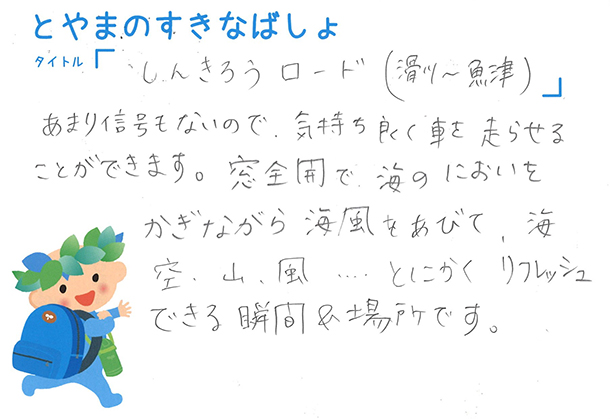 とやまのすきなばしょ
タイトル「しんきろうロード(滑川～魚津)」
あまり信号もないので、気持ち良く車を走らせる
ことができます。窓全開で、海のにおいを
かぎながら海風をあびて、海
空、山、風 ‥‥ とにかくリフレッシュ
できる瞬間&場所です。